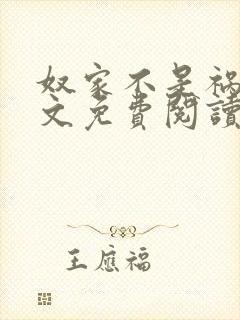 奴家不是祸
文免費閱讀
王應福